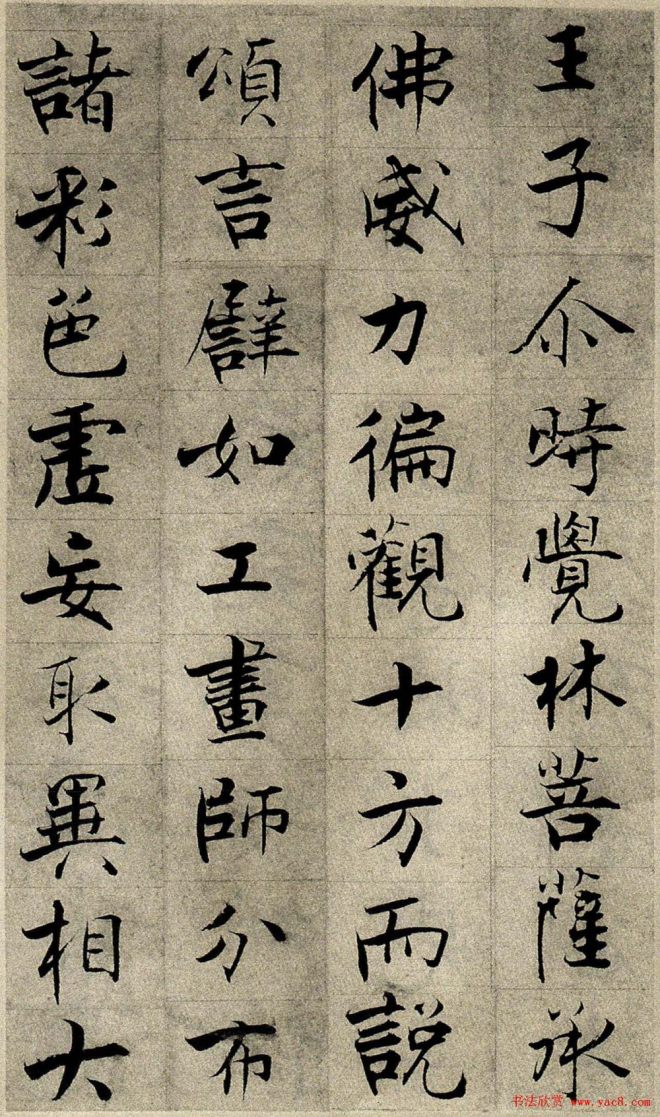 王子尒時覺林菩薩承
佛威力徧觀十方而說
頌言譬如工畫師分布
諸彩色虛妄取異相大
书法欣赏 www.yac8.com